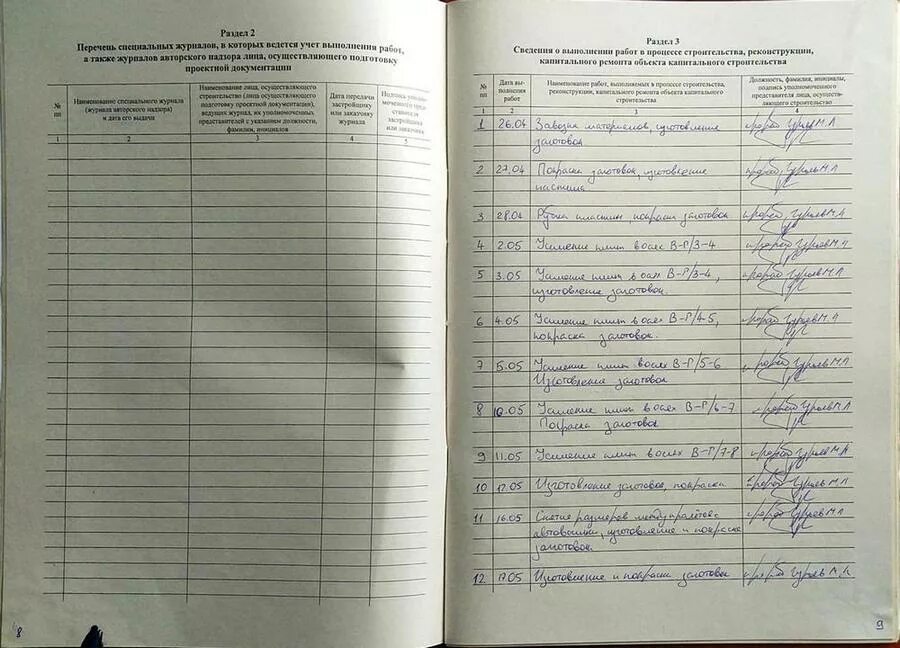 Раздел 2
Перечень специальных журналов, в которых ведется учет выполнения работ,
а также журналов авторского надзора лица, осуществляющего подготовку
проектной документации
№
пп
Наименование специального журнала
(журнала авторского надзора)
и дата его выдачи
Наименование лица, осуществляющего
строительство (лица осуществляющего
подготовку проектной документации),
ведущих журнал, их уполномоченных
представителей с указанием должности,
фамилии, инициалов
Дата передачи
застройщику
или заказчику
журнала
Подпись уполно-
моченного пред-
ставителя
застройщика
или заказчика
1 2 3 4 5
8
Раздел 3
Сведения о выполнении работ в процессе строительства, реконструкции,
капитального ремонта объекта капитального строительства
№
пп
Дата вы-
полнения
работ
Наименование работ, выполняемых в процессе строительства,
реконструкции, капитального ремонта объекта капитального
строительства
Должность, фамилия, инициалы,
подпись уполномоченного
представителя лица, осущест-
вляющего строительство
1 2 3 4
1 26.04 Завозка материалов, изготовление
заготовок
2 27.04 Покраска заготовок, изготовление
настила
3 28.04 Рубка пластин, покраска заготовок
4 2.05 Усиление плит в осях В-Г/3-4
5 3.05 Усиление плит в осях В-Г/3-4,
изготовление заготовок.
6 4.05 Усиление плит в осях В-Г/4-5,
покраска заготовок.
7 5.05 Усиление плит в осях В-Г/5-6
Изготовление заготовок
8 10.05 Усиление плит в осях В-Г/6-7
Покраска заготовок
9 11.05 Усиление плит в осях В-Г/7-8
10 12.05 Изготовление заготовок, покраска
11 16.05 Снятие размеров между пролётов с
автовышки, изготовление и покраска
заготовок.
12 17.05 Изготовление и покраска заготовок
9